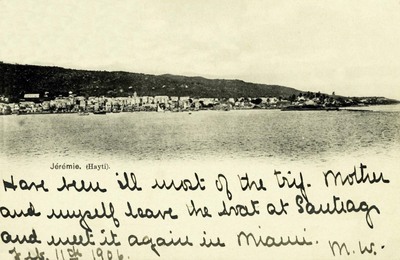 Jérémie. (Hayti).
Have been ill most of the trip. Mother
and myself leave the boat at Santiago
and meet it again in Miami.
Feb. 11th 1906. M.W.